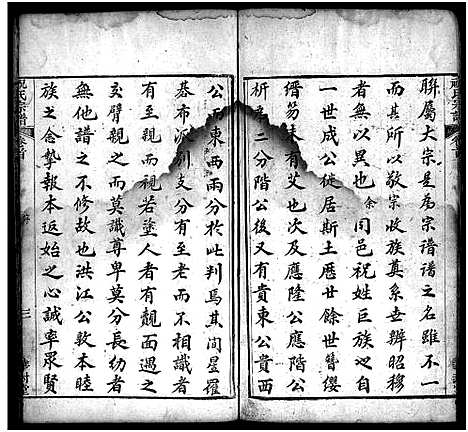 聨屬大宗是爲宗譜譜之名雖不一
而其所以敬宗收族奠系世辨昭穆
者無以異也余同邑祝姓巨族也自
一世成公徙居斯土歷廿餘世簪纓
縉笏未有艾也次及應隆公應公
析二分階公後又有貴東公貴
公而東西兩分於此判焉其間星羅
碁布派別支分有至老而不相識者
甚有親而視若塗人者有覿面遇之
交臂親之而莫識尊卑莫分長幼者
無他譜之不修故也洪江公敦本睦
族之念摯報本返始之心誠率眾賢
祝氏宗譜
卷首
三